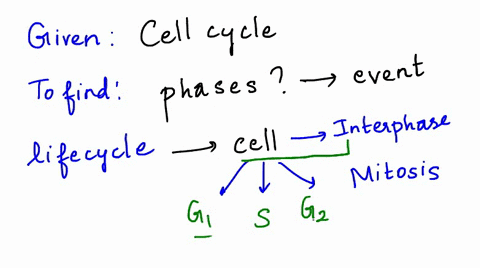 Given: Cell cycle
To find: phases? → event
lifecycle → cell → Interphase
Mitosis
G₁ S G₂